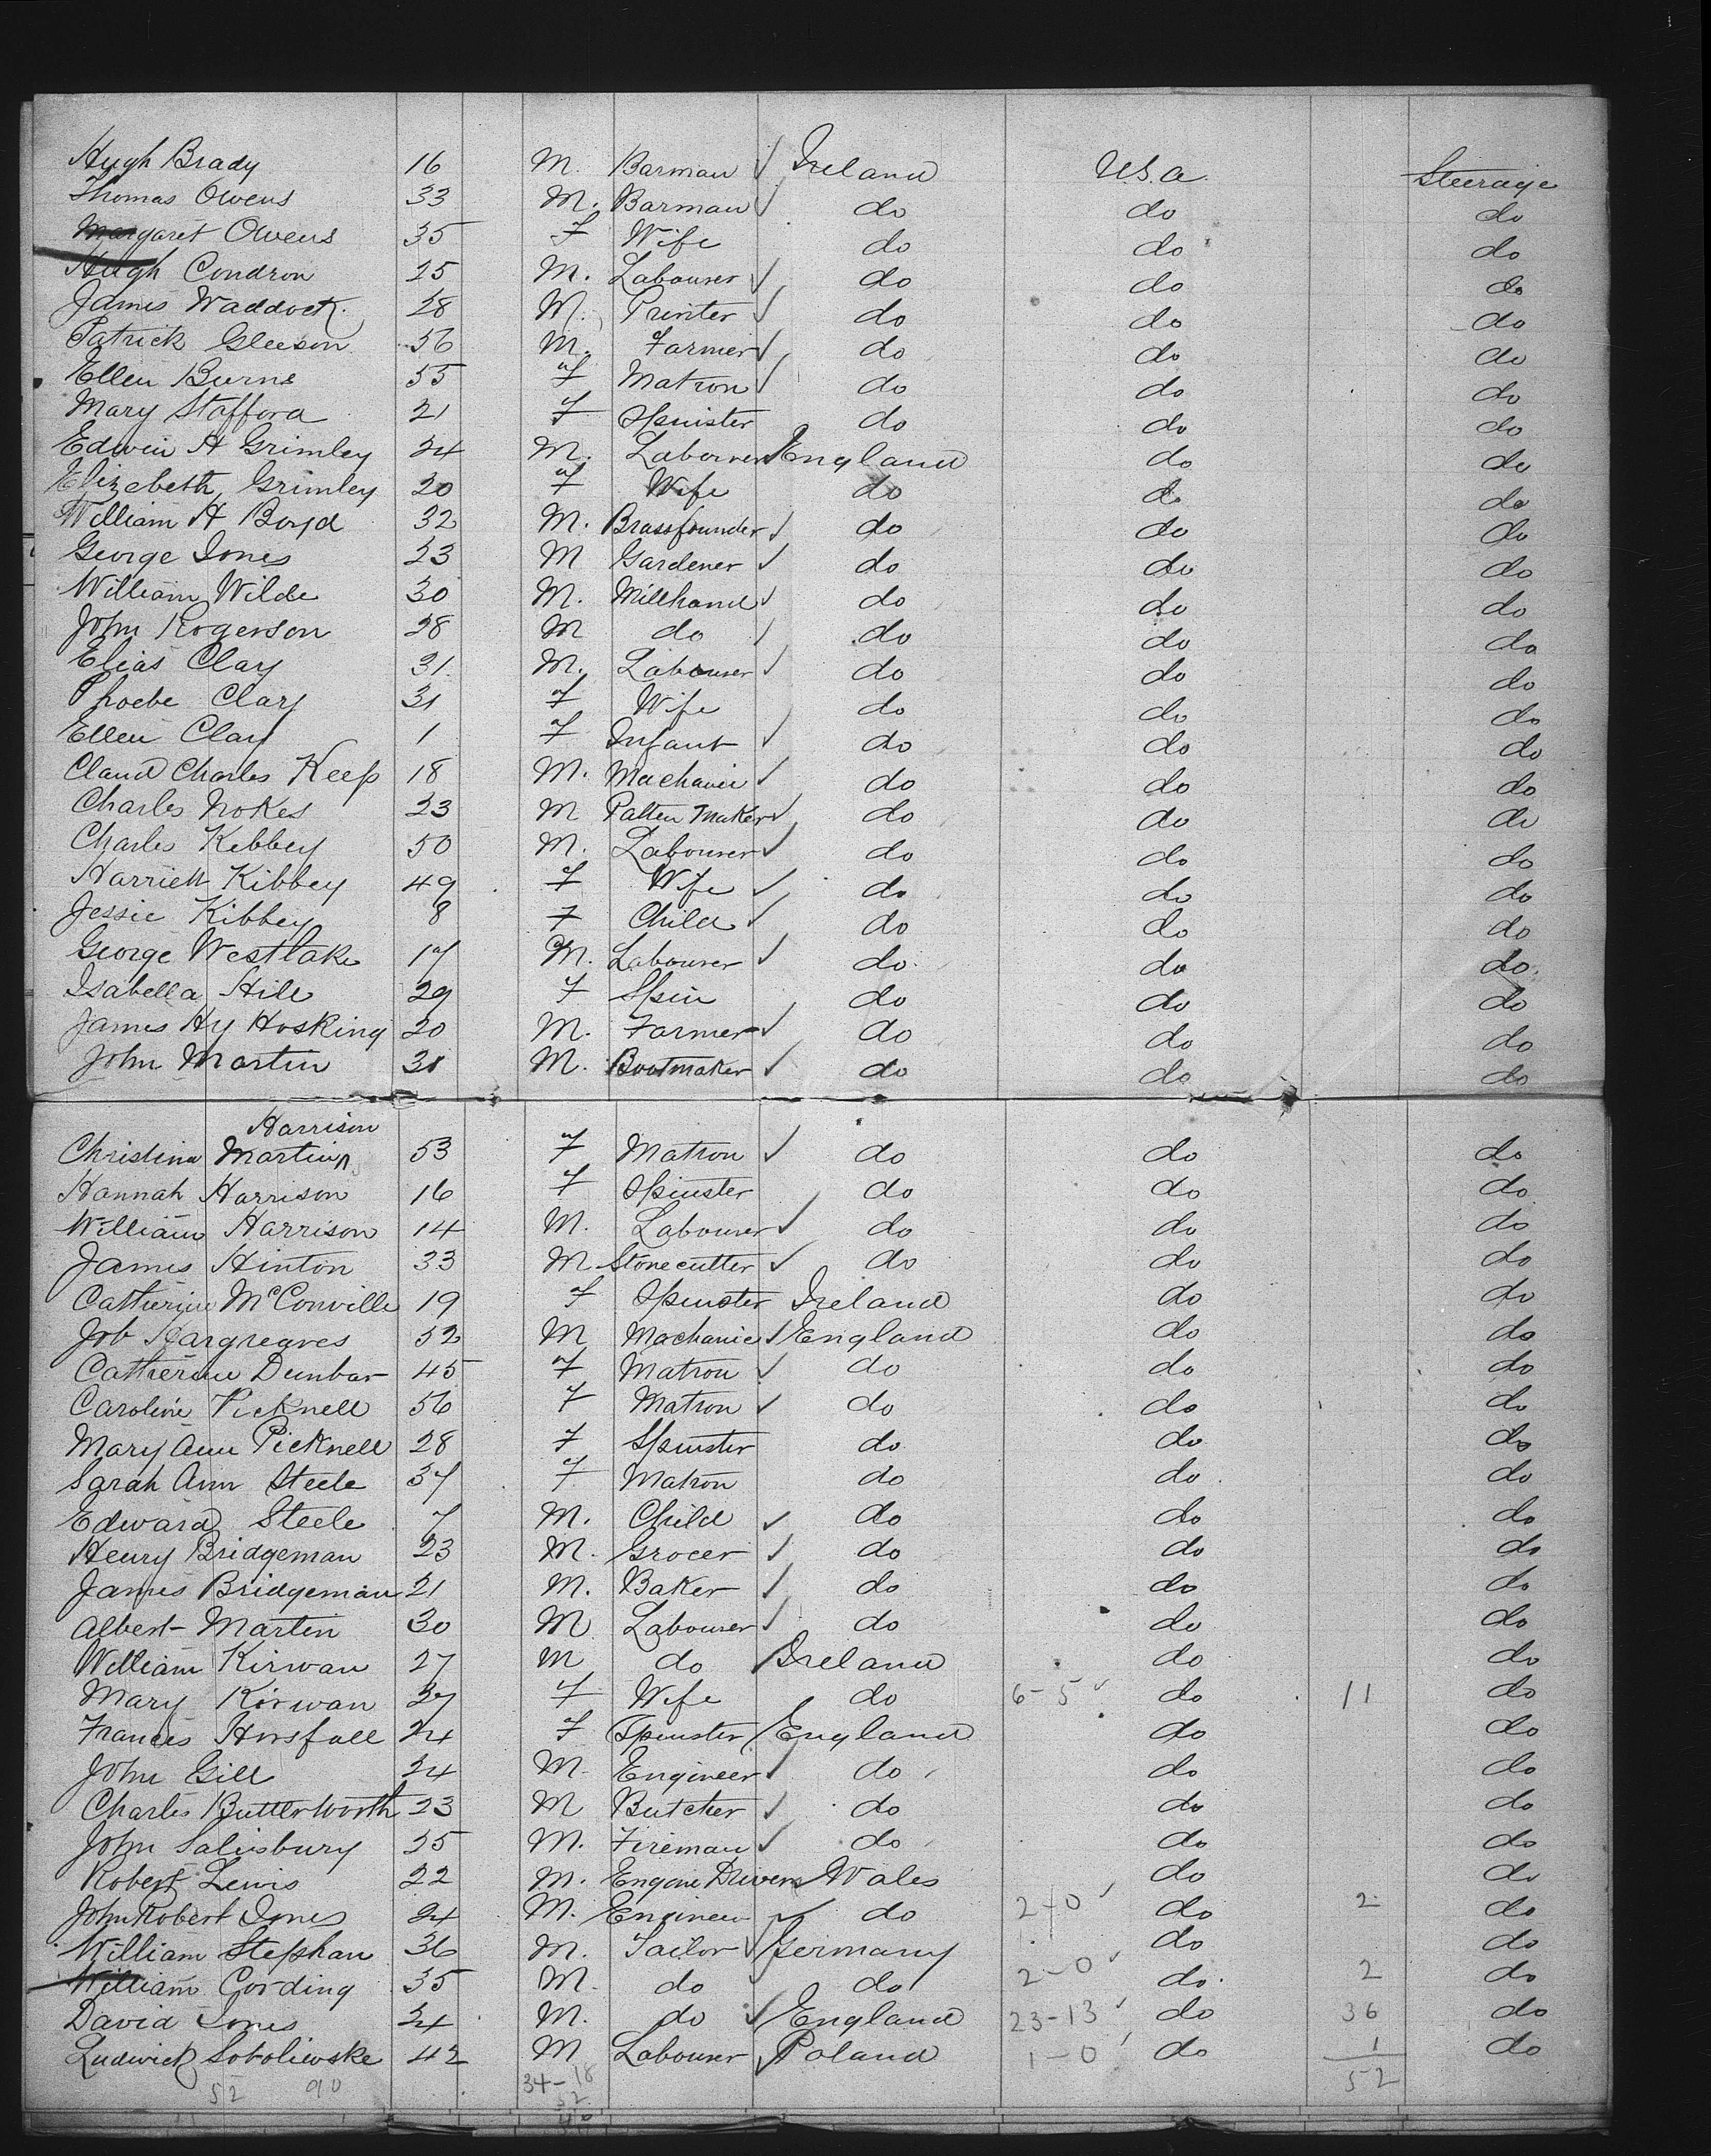 Hugh Brady 16 M. Barman ✓ Ireland U.S.a. Steerage
Thomas Owens 33 M. Barman ✓ do do do
Margaret Owens 35 F Wife do do do
Hugh Condron 25 M. Labourer ✓ do do do
James Waddock. 28 M. Printer ✓ do do do
Patrick Gleeson 56 M. Farmer ✓ do do do
Ellen Burns 55 F Matron ✓ do do do
Mary Stafford 21 F Spinster do do do
Edwin H Grimley 24 M. Labourer ✓ England do do
Elizabeth Grimley 20 F Wife do do do
William H Boyd 32 M. Brassfounder ✓ do do do
George Jones 23 M Gardener ✓ do do do
William Wilde 30 M. Millhand ✓ do do do
John Rogerson 28 M do ✓ do do do
Elias Clay 31 M. Labourer ✓ do do do
Phoebe Clay 31 F Wife do do do
Ellen Clay 1 F Infant ✓ do do do
Claud Charles Keep 18 M. Machanic ✓ do do do
Charles Nokes 23 M Patten Maker ✓ do do do
Charles Kibbey 50 M. Labourer ✓ do do do
Harriett Kibbey 49 F Wife ✓ do do do
Jessie Kibbey 8 F Child ✓ do do do
George Westlake 17 M. Labourer ✓ do do do
Isabella Hill 29 F Spin do do do
James Hy Hosking 20 M. Farmer ✓ do do do
John Martin 31 M. Bootmaker ✓ do do do
Harrison
Christina Martin 53 F Matron ✓ do do do
Hannah Harrison 16 F Spinster do do do
William Harrison 14 M. Labourer ✓ do do do
James Hinton 33 M Stonecutter ✓ do do do
Catherine McConville 19 F Spinster Ireland do do
Job Hargreaves 52 M Machanic ✓ England do do
Catherine Dunbar 45 F Matron ✓ do do do
Caroline Picknell 56 F Matron ✓ do do do
Mary Ann Picknell 28 F Spinster do do do
Sarah Ann Steele 37 F Matron do do do
Edward Steele 7 M. Child ✓ do do do
Henry Bridgeman 23 M. Grocer ✓ do do do
James Bridgeman 21 M. Baker ✓ do do do
Albert Martin 30 M Labourer ✓ do do do
William Kirwan 27 M do Ireland do do
Mary Kirwan 27 F Wife do 6-5 ✓ do 11 do
Frances Horsfall 24 F Spinster England do do
John Gill 24 M Engineer ✓ do do do
Charles Butterworth 23 M Butcher ✓ do do do
John Salisbury 25 M. Fireman ✓ do do do
Robert Lewis 22 M. Engine Driver Wales do do
John Robert Jones 24 M. Engineer ✓ do 2-0 ✓ do 2 do
William Stephan 36 M. Tailor ✓ Germany do do
William Cording 35 M. do do 2-0 ✓ do 2 do
David Jones 24 M. do ✓ England 23-13 ✓ do 36 do
Ludwick Soboliewske 42 M Labourer ✓ Poland 1-0 ✓ do 1 do
52 90 34-18 52
52